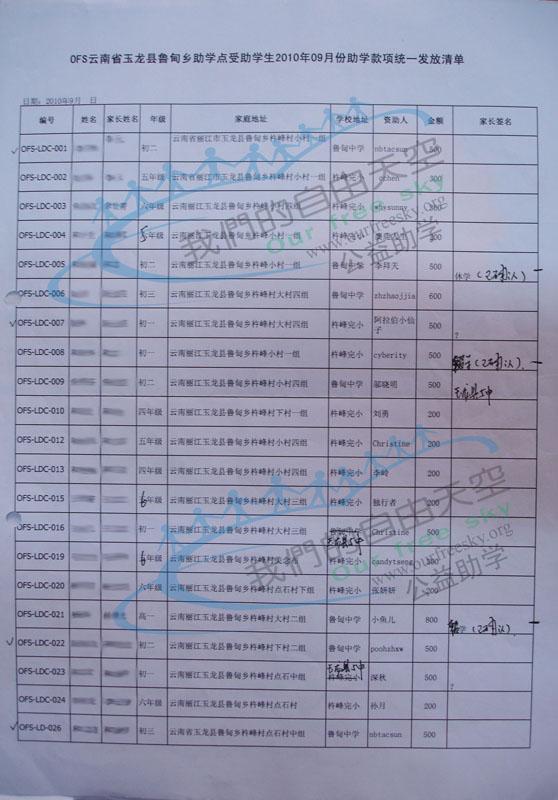 OFS云南省玉龙县鲁甸乡助学点受助学生2010年09月份助学款项统一发放清单
日期：2010年9月 日
编号 姓名 家长姓名 年级 家庭地址 学校地址 资助人 金额 家长签名
OFS-LDC-001 初二 云南省丽江市玉龙县鲁甸乡杵峰村小村一组 鲁甸中学 nbtacsun 500
OFS-LDC-002 五年级 云南省丽江市玉龙县鲁甸乡杵峰村小村一组 杵峰完小 300
OFS-LDC-003 六年级 云南丽江玉龙县鲁甸乡杵峰村小村四组 杵峰完小
OFS-LDC-004 5年级 云南丽江玉龙县鲁甸乡杵峰村小村一组 杵峰完小
OFS-LDC-005 初二 云南丽江玉龙县鲁甸乡杵峰村小村一组 500 休学（已确认）
OFS-LDC-006 初三 云南丽江玉龙县鲁甸乡杵峰村大村四组 鲁甸中学 zhzhaojjia 600
OFS-LDC-007 初一 云南丽江玉龙县鲁甸乡杵峰村大村四组 杵峰完小 阿拉伯小仙子 500 ?
OFS-LDC-008 初一 云南丽江玉龙县鲁甸乡杵峰小村一组 杵峰完小 cyberity 500 （已确认）
OFS-LDC-009 初二 云南丽江玉龙县鲁甸乡杵峰村小村四组 鲁甸中学 邬晓明 500 玉龙县5中
OFS-LDC-010 四年级 云南丽江玉龙县鲁甸乡杵峰村下村一组 杵峰完小 刘勇 200
OFS-LDC-012 五年级 云南丽江玉龙县鲁甸乡杵峰村小村四组 杵峰完小 Christine 200
OFS-LDC-013 四年级 云南丽江玉龙县鲁甸乡杵峰村小村四组 杵峰完小 李岭 200
OFS-LDC-015 6年级 云南丽江玉龙县鲁甸乡杵峰村大村三组 杵峰完小 独行者 200
OFS-LDC-016 初一 云南丽江玉龙县鲁甸乡杵峰村大村三组 玉龙县5中 Christine 500
OFS-LDC-019 6年级 杵峰完小 candytseng 300
OFS-LDC-020 六年级 云南丽江玉龙县鲁甸乡杵峰村点石村下组 杵峰完小 张妍妍 200
OFS-LDC-021 高一 云南丽江玉龙县鲁甸乡杵峰村大村二组 鲁甸中学 小鱼儿 800 （已确认）
OFS-LDC-022 初二 云南丽江玉龙县鲁甸乡杵峰村大村二组 鲁甸中学 poohzhxw 500
OFS-LDC-023 初一 云南丽江玉龙县鲁甸乡杵峰村点石中组 玉龙县5中 杵峰完小 深秋 500 ?
OFS-LDC-024 六年级 云南丽江玉龙县鲁甸乡杵峰村点石村 杵峰完小 孙月 200
OFS-LD-026 初三 云南省玉龙县鲁甸乡杵峰村点石村中组 鲁甸中学 nbtacsun 500
我們的自由天空
Our free sky
www.ourfreesky.org
公益助学
我們的自由天空
Our free sky
www.ourfreesky.org
公益助学